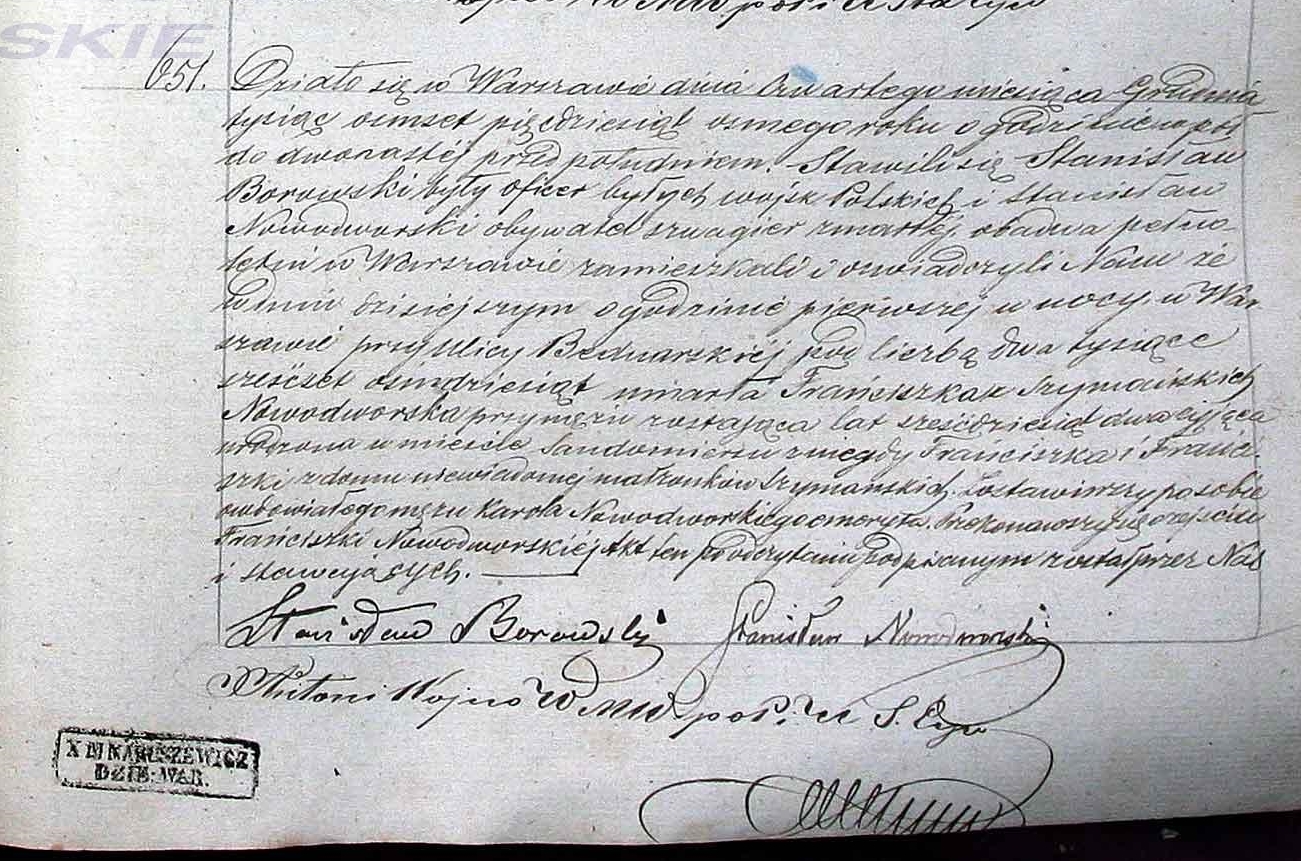 SKIE
651. Działo się w Warszawie dnia Czwartego miesiąca Grudnia
tysiąc ośmset pięćdziesiąt osmego roku o godzinie wpół
do dwonastéj przed południem. Stawili się Stanisław
Borowski były oficer byłych wojsk Polskich i Stanisław
Nowodworski obywatel szwagier zmarłéj, obadwa pełno-
letni w Warszawie zamieszkali i oswiadczyli Nam że
w dniu dzisiejszym o godzinie pierwszej w nocy w War-
szawie przy Ulicy Bednarskiéj pod liczbą dwa tysiące
sześćset ośmdziesiąt umarła Franciszka z Szymańskich
Nowodworska przy mężu zostająca lat sześćdziesiąt dwa
urodzona w mieście Sandomierzu z niegdy Franciszka i Franci-
szki z domu niewiadomej małżonków Szymańskich. Zostawiwszy po sobie
owdowiałego męża Karola Nowodworskiego emeryta. Przekonawszy się o zejściu
Franciszki Nowodworskiej Akt ten po odczytaniu podpisanym został przez Nas
i stawających.
Stanisław Borowski Stanisław Nowodworski
Antoni Wojno
X M NARUSZEWICZ
DZIE. WAR.